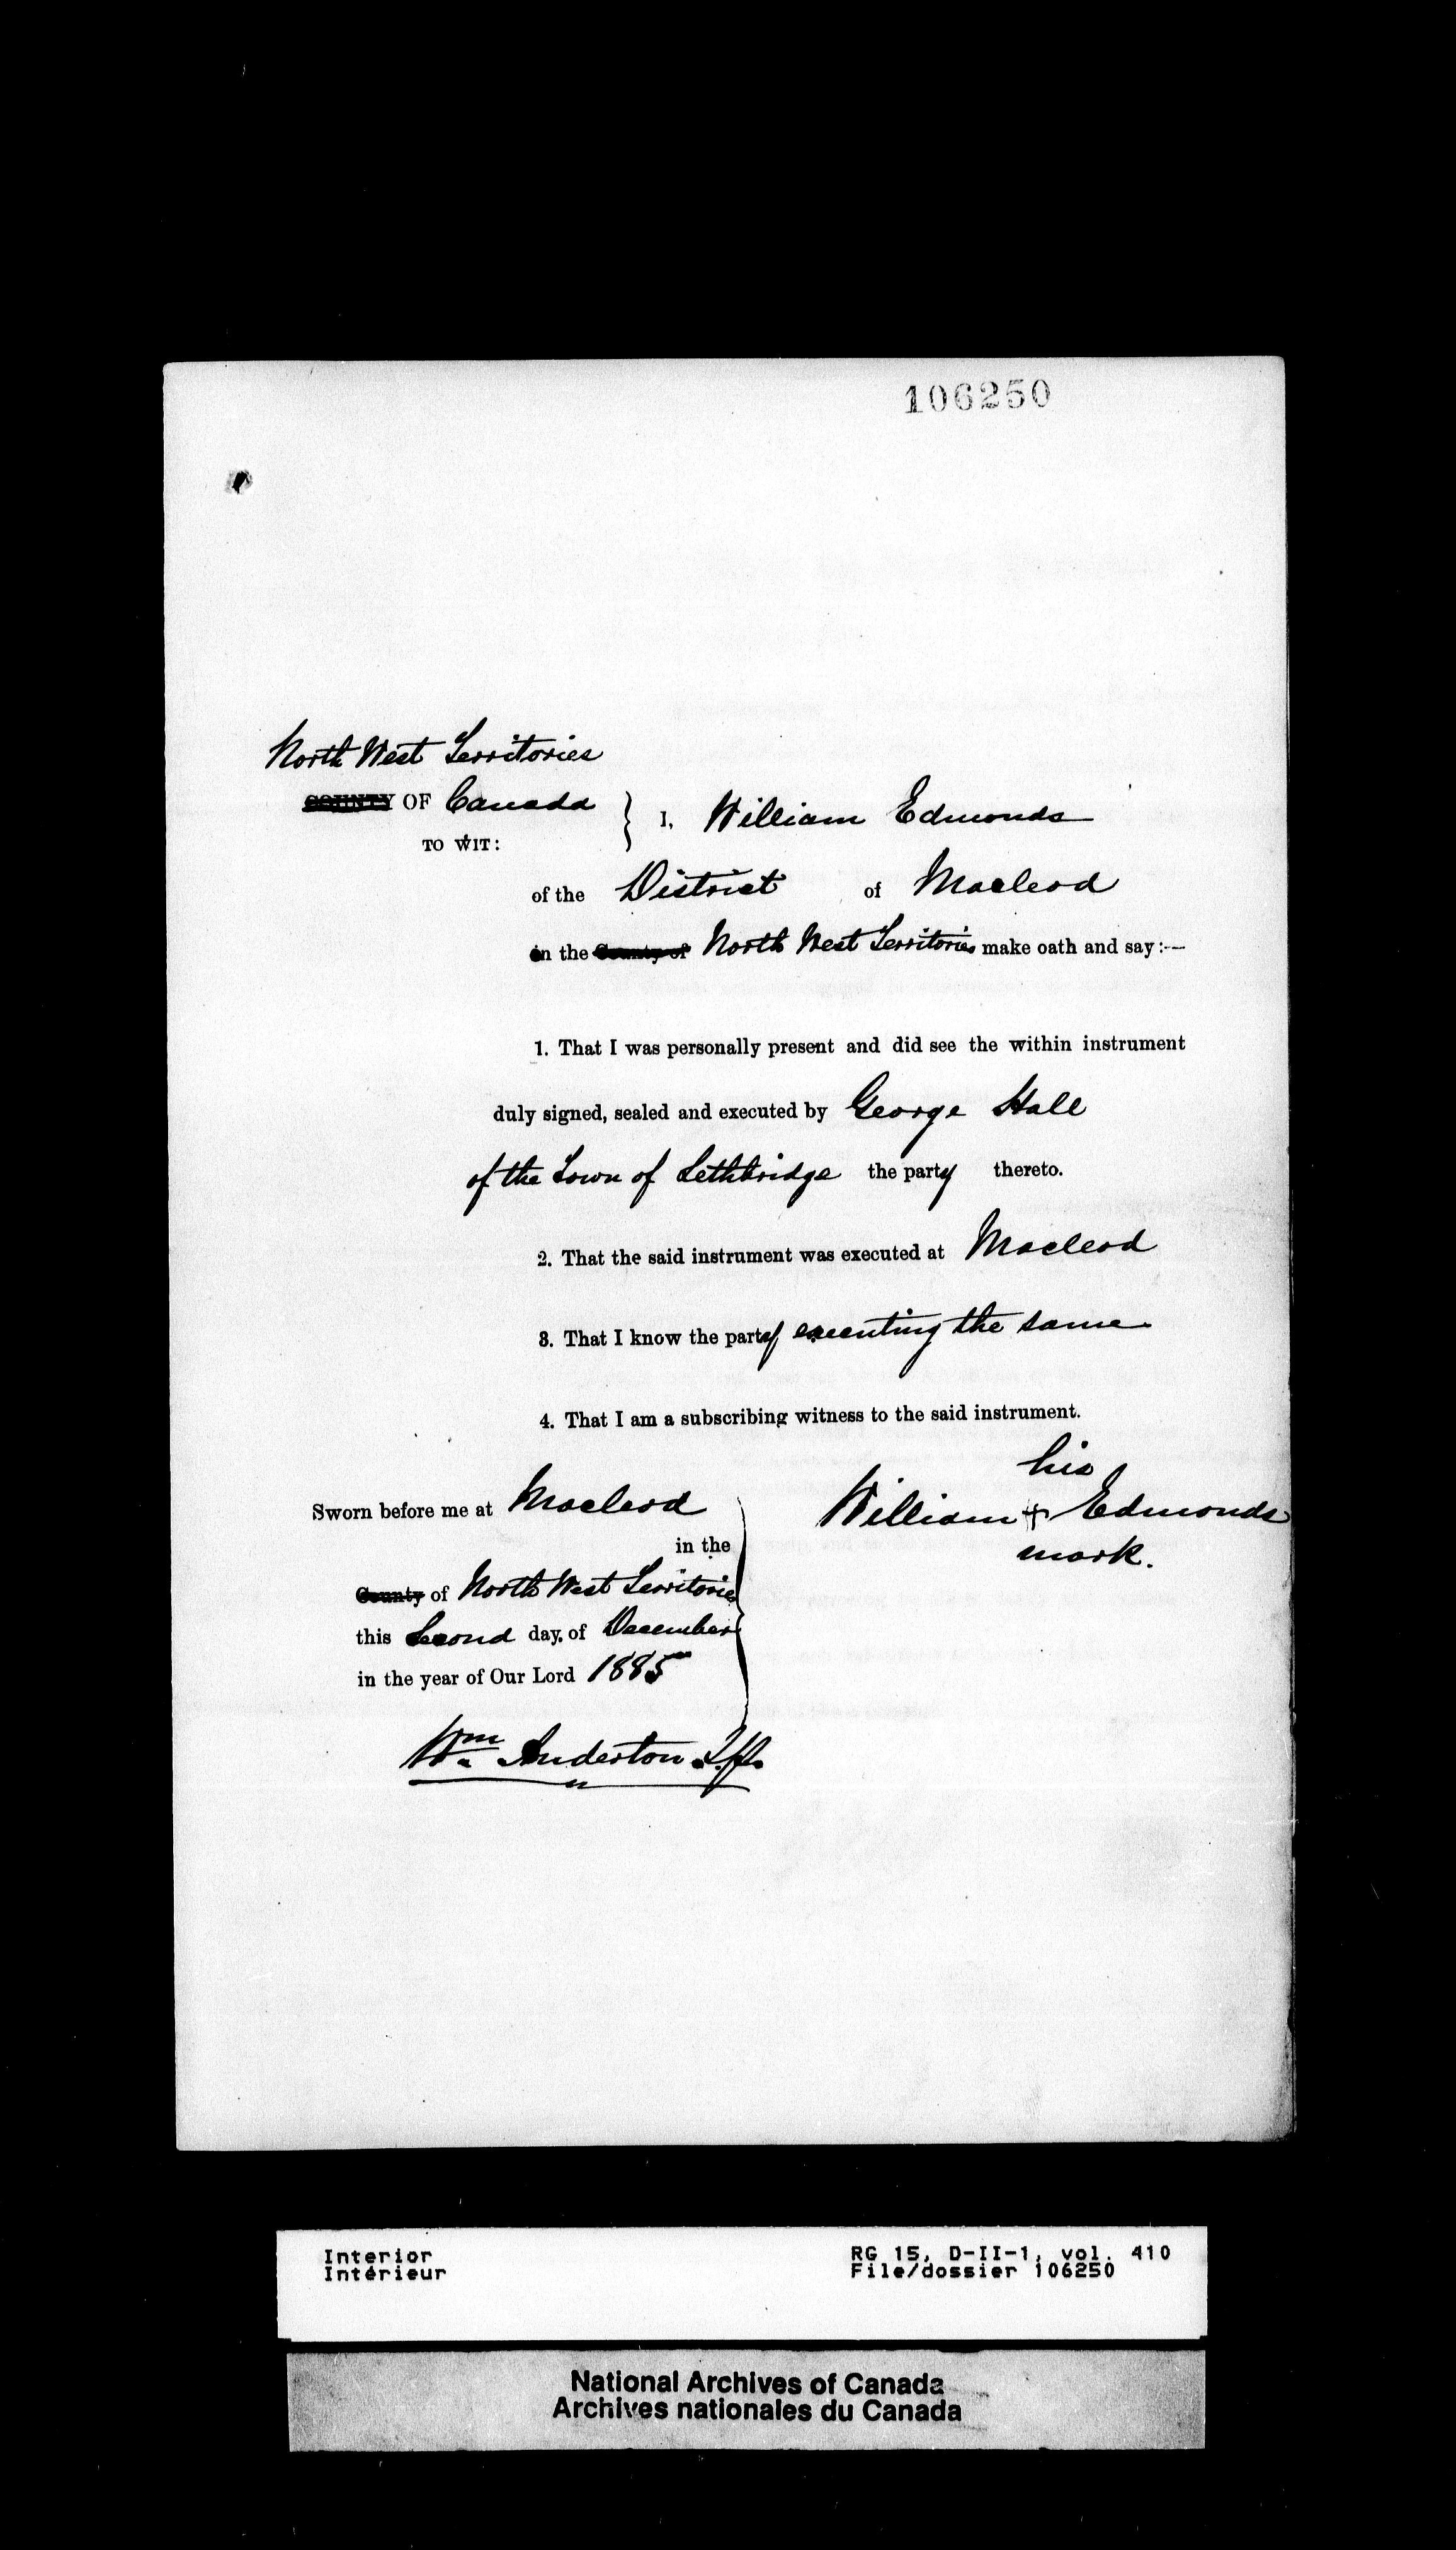 106250
North West Territories
COUNTY OF Canada
TO WIT:
I, William Edmonds
of the District of Macleod
in the County of North West Territories make oath and say:—
1. That I was personally present and did see the within instrument
duly signed, sealed and executed by George Hall
of the Town of Lethbridge the party thereto.
2. That the said instrument was executed at Macleod
3. That I know the party executing the same
4. That I am a subscribing witness to the said instrument.
his
William + Edmonds
mark.
Sworn before me at Macleod
in the
County of North West Territories
this Second day of December
in the year of Our Lord 1885
Wm Anderton J.P.
Interior
Intérieur
RG 15, D-II-1, vol. 410
File/dossier 106250
National Archives of Canada
Archives nationales du Canada